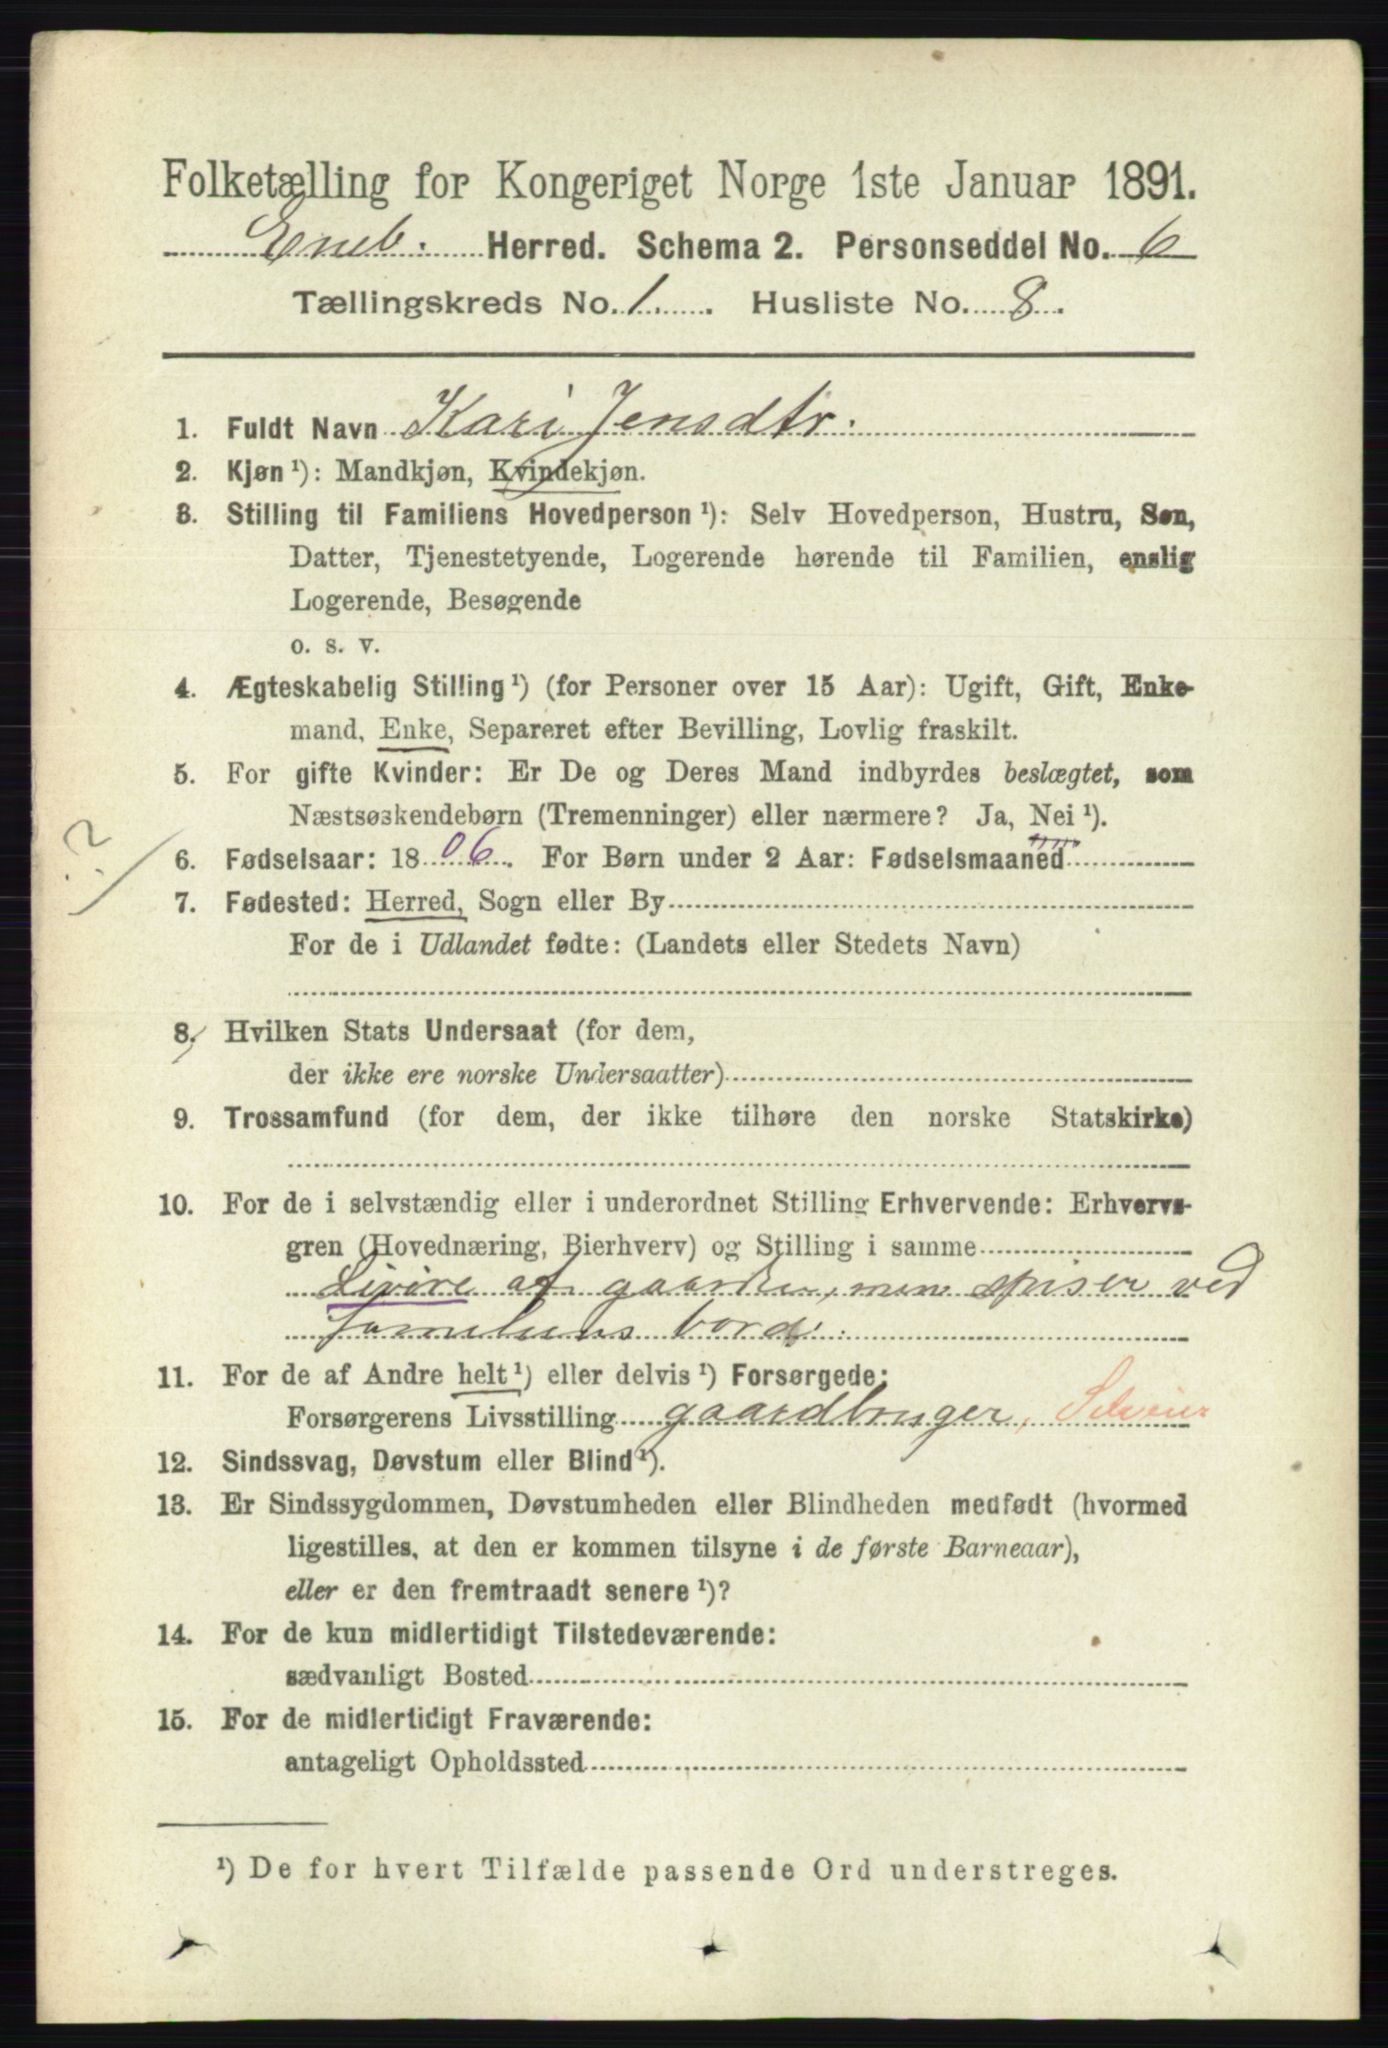 Folketælling for Kongeriget Norge 1ste Januar 1891.
Eneb. Herred. Schema 2. Personseddel No. 6
Tællingskreds No. 1. Husliste No. 8.
1. Fuldt Navn Kari Jensdtr.
2. Kjøn ¹): Mandkjøn, Kvindekjøn.
3. Stilling til Familiens Hovedperson ¹): Selv Hovedperson, Hustru, Søn,
Datter, Tjenestetyende, Logerende hørende til Familien, enslig
Logerende, Besøgende
o. s. v.
4. Ægteskabelig Stilling ¹) (for Personer over 15 Aar): Ugift, Gift, Enke-
mand, Enke, Separeret efter Bevilling, Lovlig fraskilt.
5. For gifte Kvinder: Er De og Deres Mand indbyrdes beslægtet, som
Næstsøskendebørn (Tremenninger) eller nærmere? Ja, Nei ¹).
?
6. Fødselsaar: 1806. For Børn under 2 Aar: Fødselsmaaned
7. Fødested: Herred, Sogn eller By
For de i Udlandet fødte: (Landets eller Stedets Navn)
8. Hvilken Stats Undersaat (for dem,
der ikke ere norske Undersaatter)
9. Trossamfund (for dem, der ikke tilhøre den norske Statskirke)
10. For de i selvstændig eller i underordnet Stilling Erhvervende: Erhvervs-
gren (Hovednæring, Bierhverv) og Stilling i samme
af gaarden, men spiser ved
familiens bord.
11. For de af Andre helt ¹) eller delvis ¹) Forsørgede:
Forsørgerens Livsstilling gaardbruger, Selveier
12. Sindssvag, Døvstum eller Blind ¹).
13. Er Sindssygdommen, Døvstumheden eller Blindheden medfødt (hvormed
ligestilles, at den er kommen tilsyne i de første Barneaar),
eller er den fremtraadt senere ¹)?
14. For de kun midlertidigt Tilstedeværende:
sædvanligt Bosted
15. For de midlertidigt Fraværende:
antageligt Opholdssted
¹) De for hvert Tilfælde passende Ord understreges.